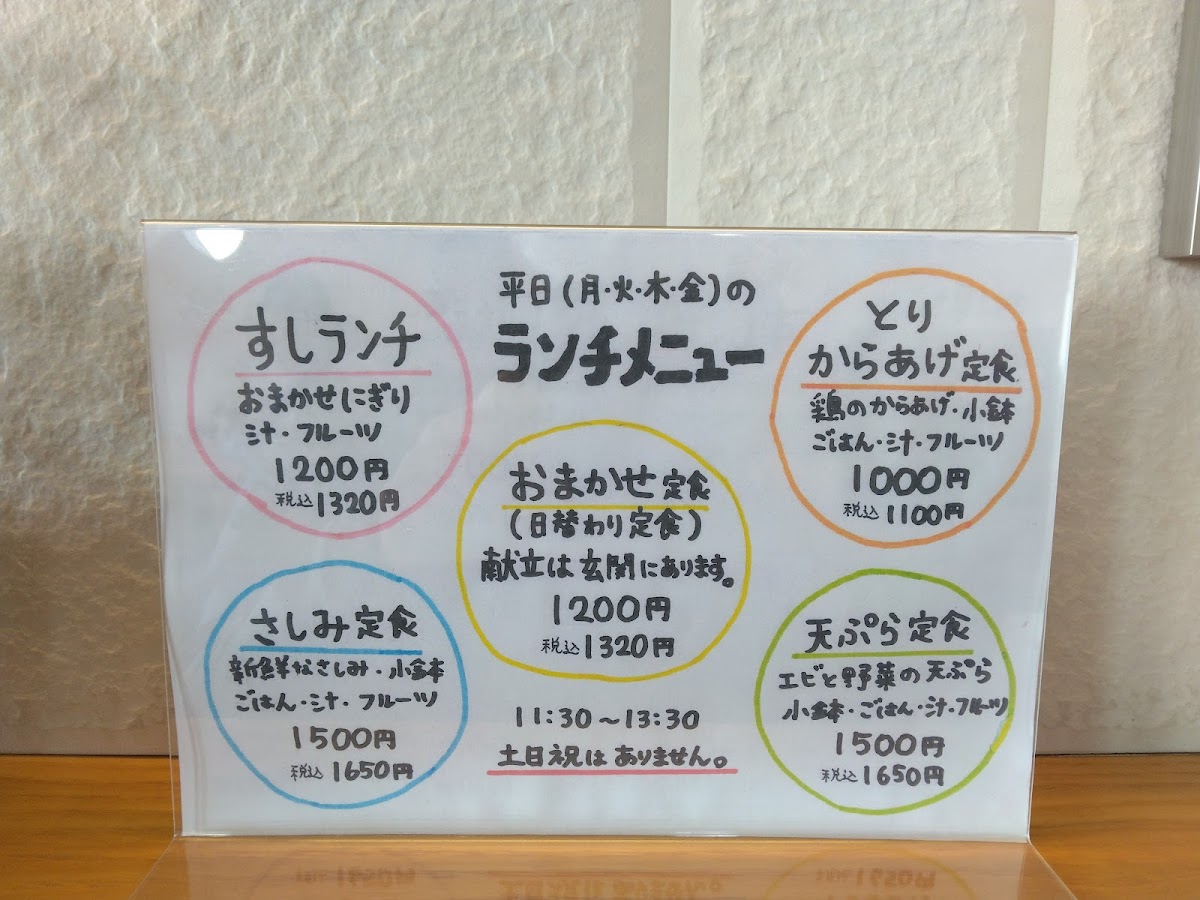 平日(月・火・木・金)の
ランチメニュー
すしランチ
おまかせにぎり
汁・フルーツ
1200円
税込1320円
とり
からあげ定食
鶏のからあげ・小鉢
ごはん・汁・フルーツ
1000円
税込1100円
おまかせ定食
(日替わり定食)
献立は玄関にあります。
1200円
税込1320円
さしみ定食
新鮮なさしみ・小鉢
ごはん・汁・フルーツ
1500円
税込1650円
天ぷら定食
エビと野菜の天ぷら
小鉢・ごはん・汁・フルーツ
1500円
税込1650円
11:30〜13:30
土日祝はありません。